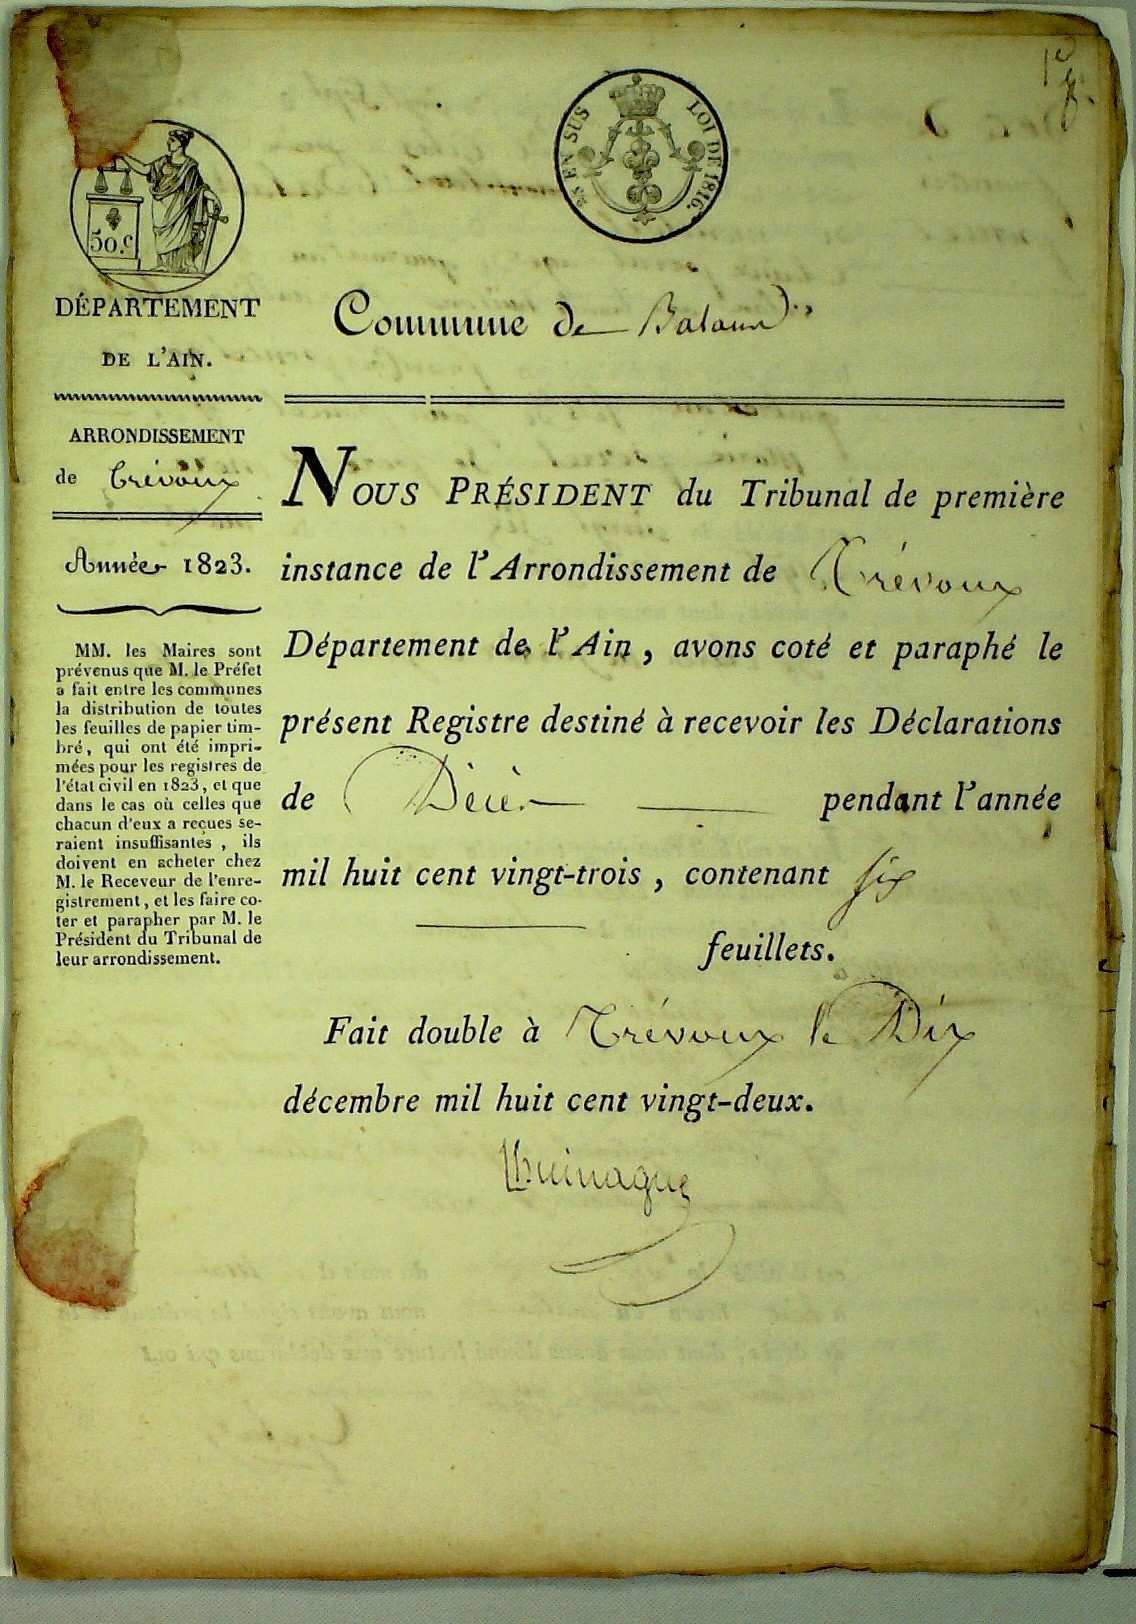 1er
25 EN SUS LOI DE 1816.
50.c
DÉPARTEMENT
DE L'AIN.
Commune de Balan
ARRONDISSEMENT
de Trévoux
Année 1823.
MM. les Maires sont
prévenus que M. le Préfet
a fait entre les communes
la distribution de toutes
les feuilles de papier tim-
bré, qui ont été impri-
mées pour les registres de
l'état civil en 1823, et que
dans le cas où celles que
chacun d'eux a reçues se-
raient insuffisantes, ils
doivent en acheter chez
M. le Receveur de l'enre-
gistrement, et les faire co-
ter et parapher par M. le
Président du Tribunal de
leur arrondissement.
NOUS PRÉSIDENT du Tribunal de première
instance de l'Arrondissement de Trévoux
Département de l'Ain, avons coté et paraphé le
présent Registre destiné à recevoir les Déclarations
de Décès pendant l'année
mil huit cent vingt-trois, contenant six
feuillets.
Fait double à Trévoux le Dix
décembre mil huit cent vingt-deux.